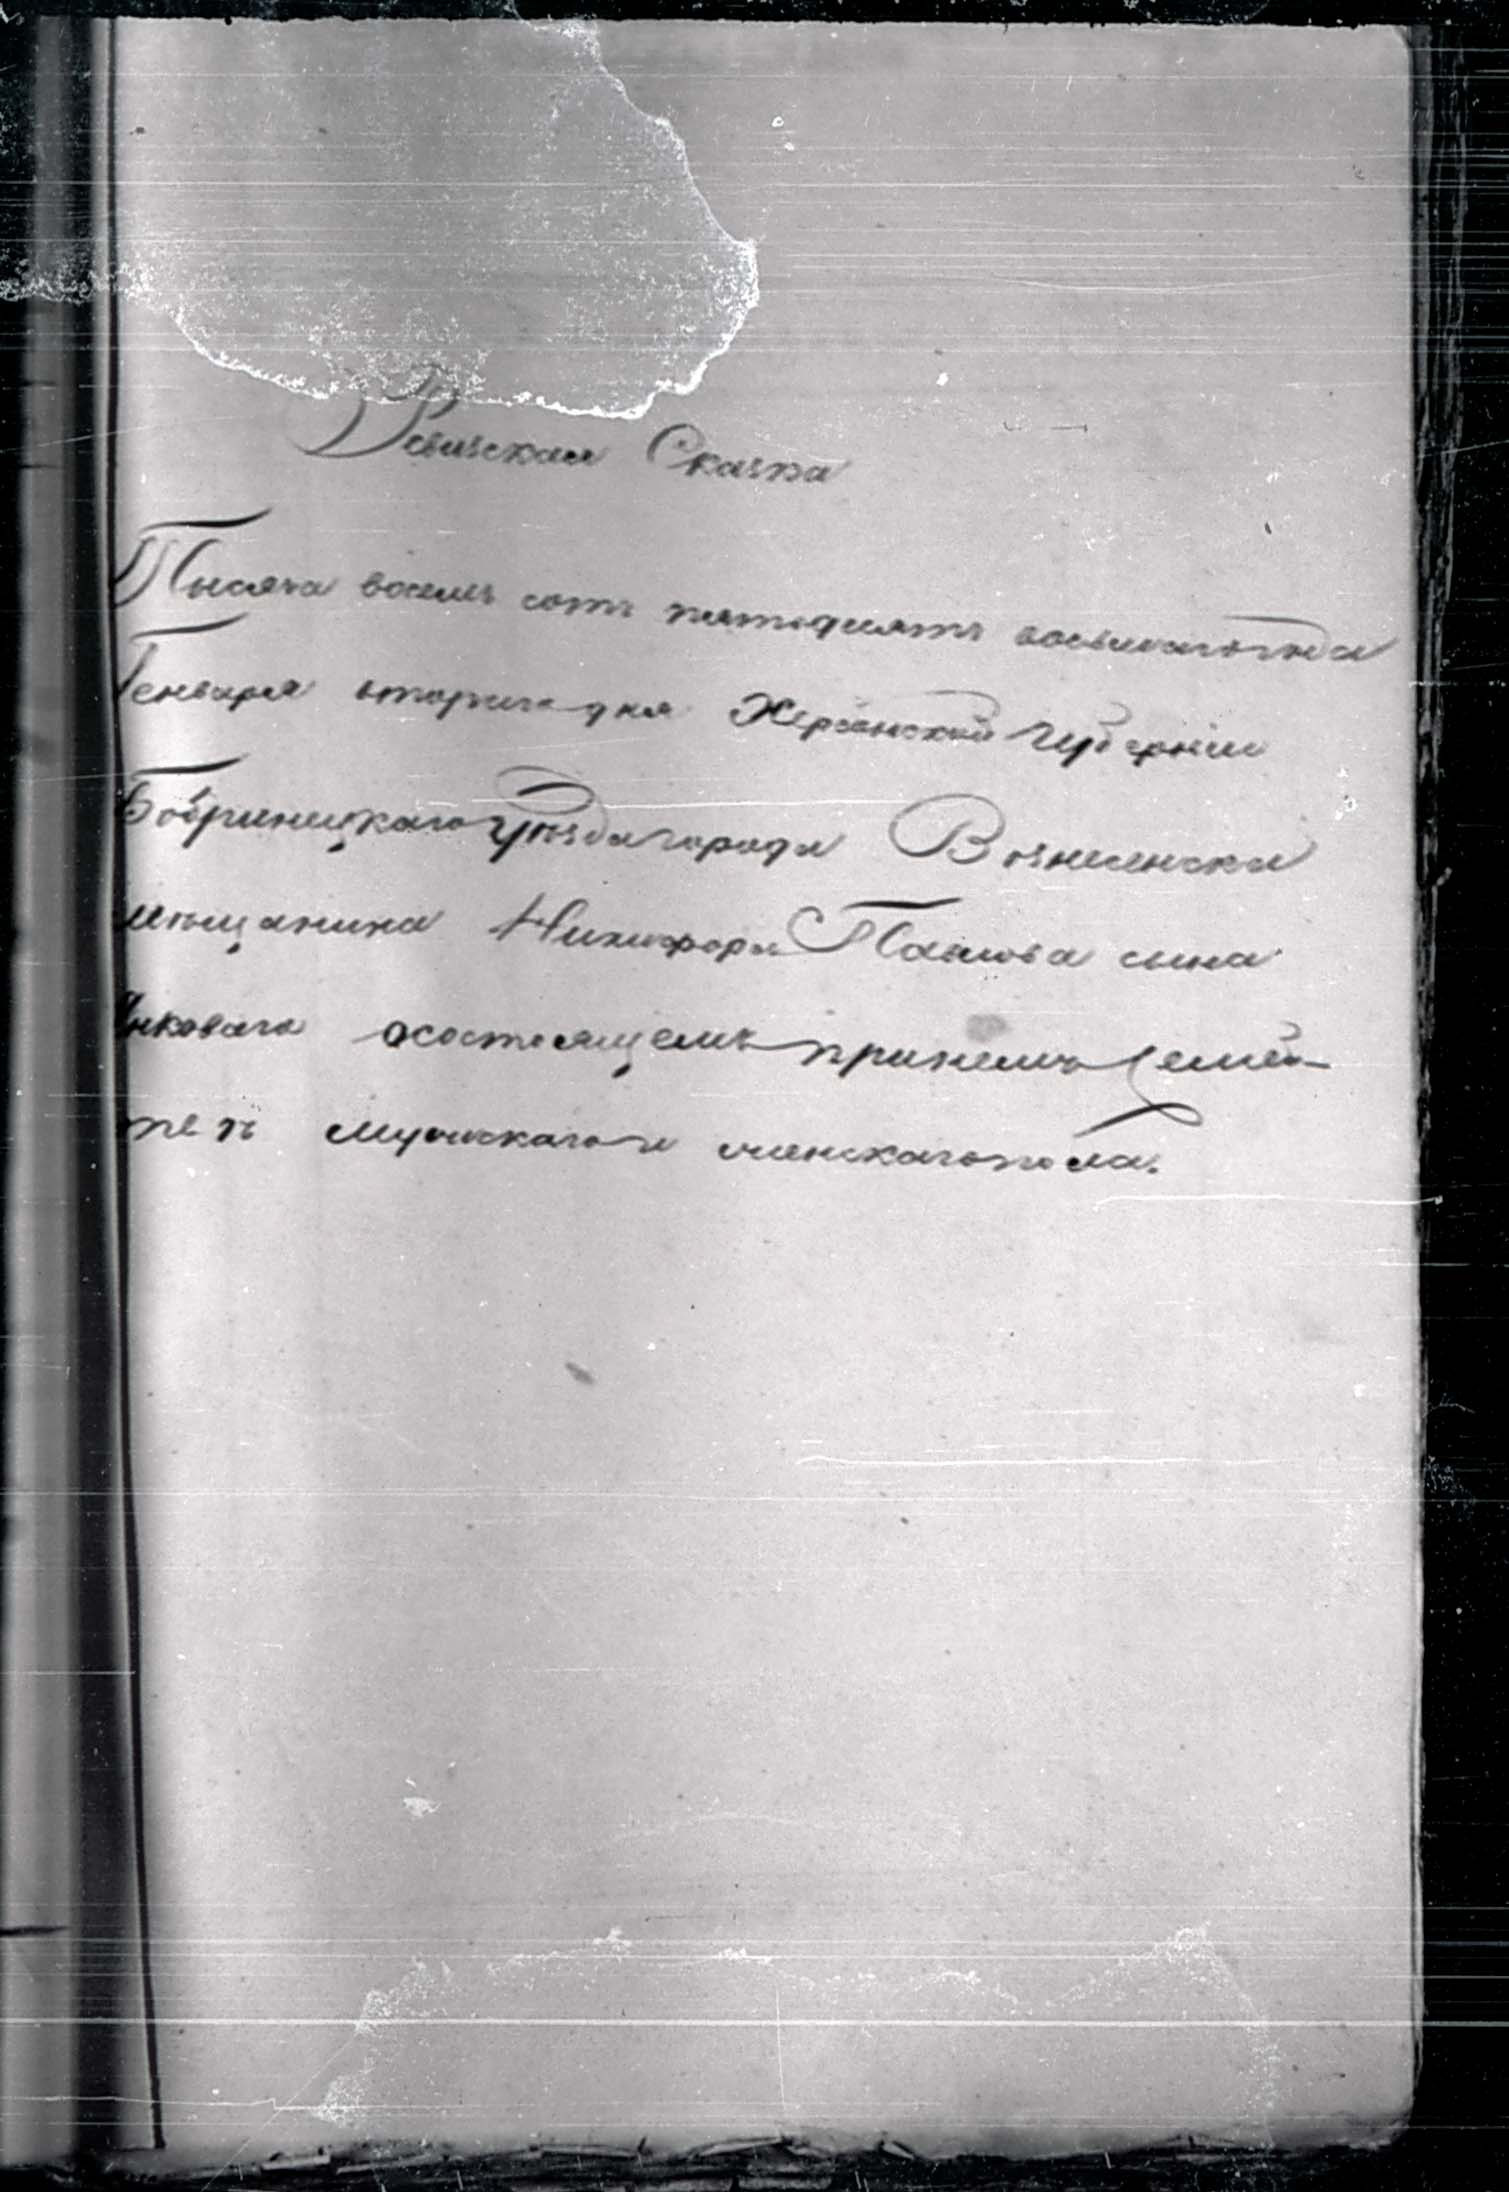 Ревизская Сказка
Тысяча восемь сотъ пятьдесятъ восьмаго года
Генваря втораго дня Херсонской Губерніи
Бобринецкаго Уѣзда города Вознесенска
мѣщанина Никифора Павлова сына
Янковаго о состоящемъ при немъ Семей-
ствѣ мужскаго и женскаго пола.